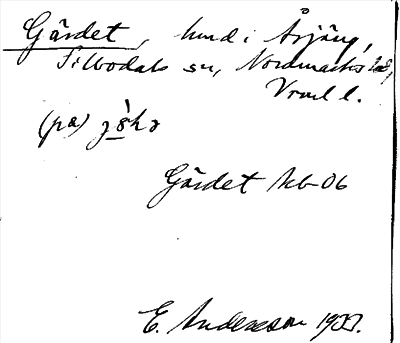 Gärdet, hmd i Årjäng,
Silbodals sn, Nordmarks hd,
Vrml l.
(på)
Gärdet hb-06
E. Andersson 1933.